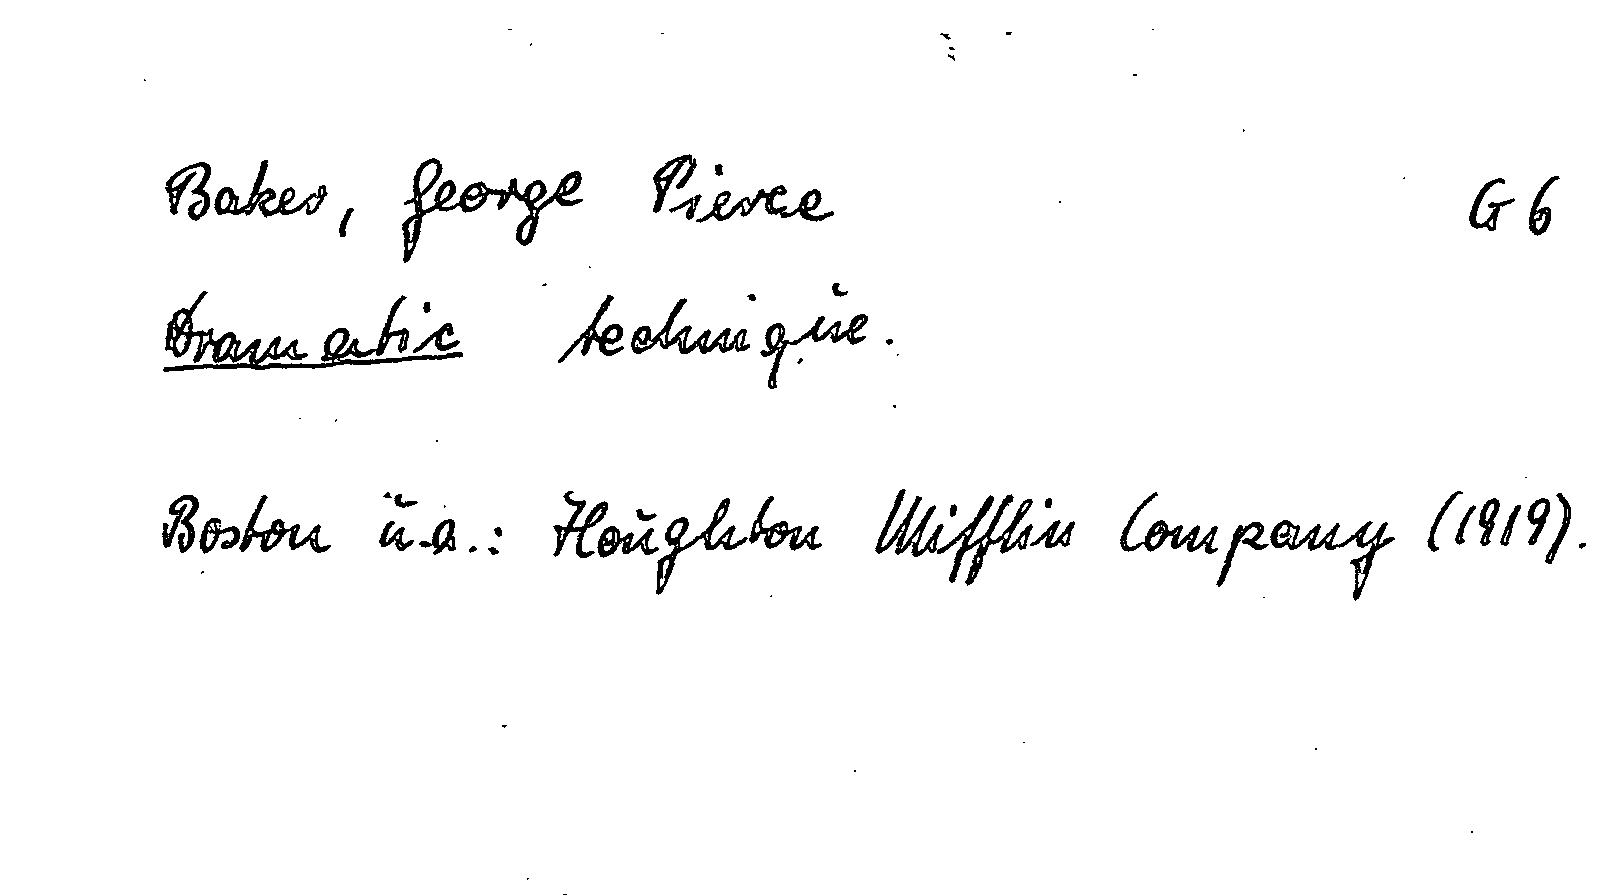 Baker, George Pierce G 6
Dramatic technique.
Boston u.a.: Houghton Mifflin Company (1919).